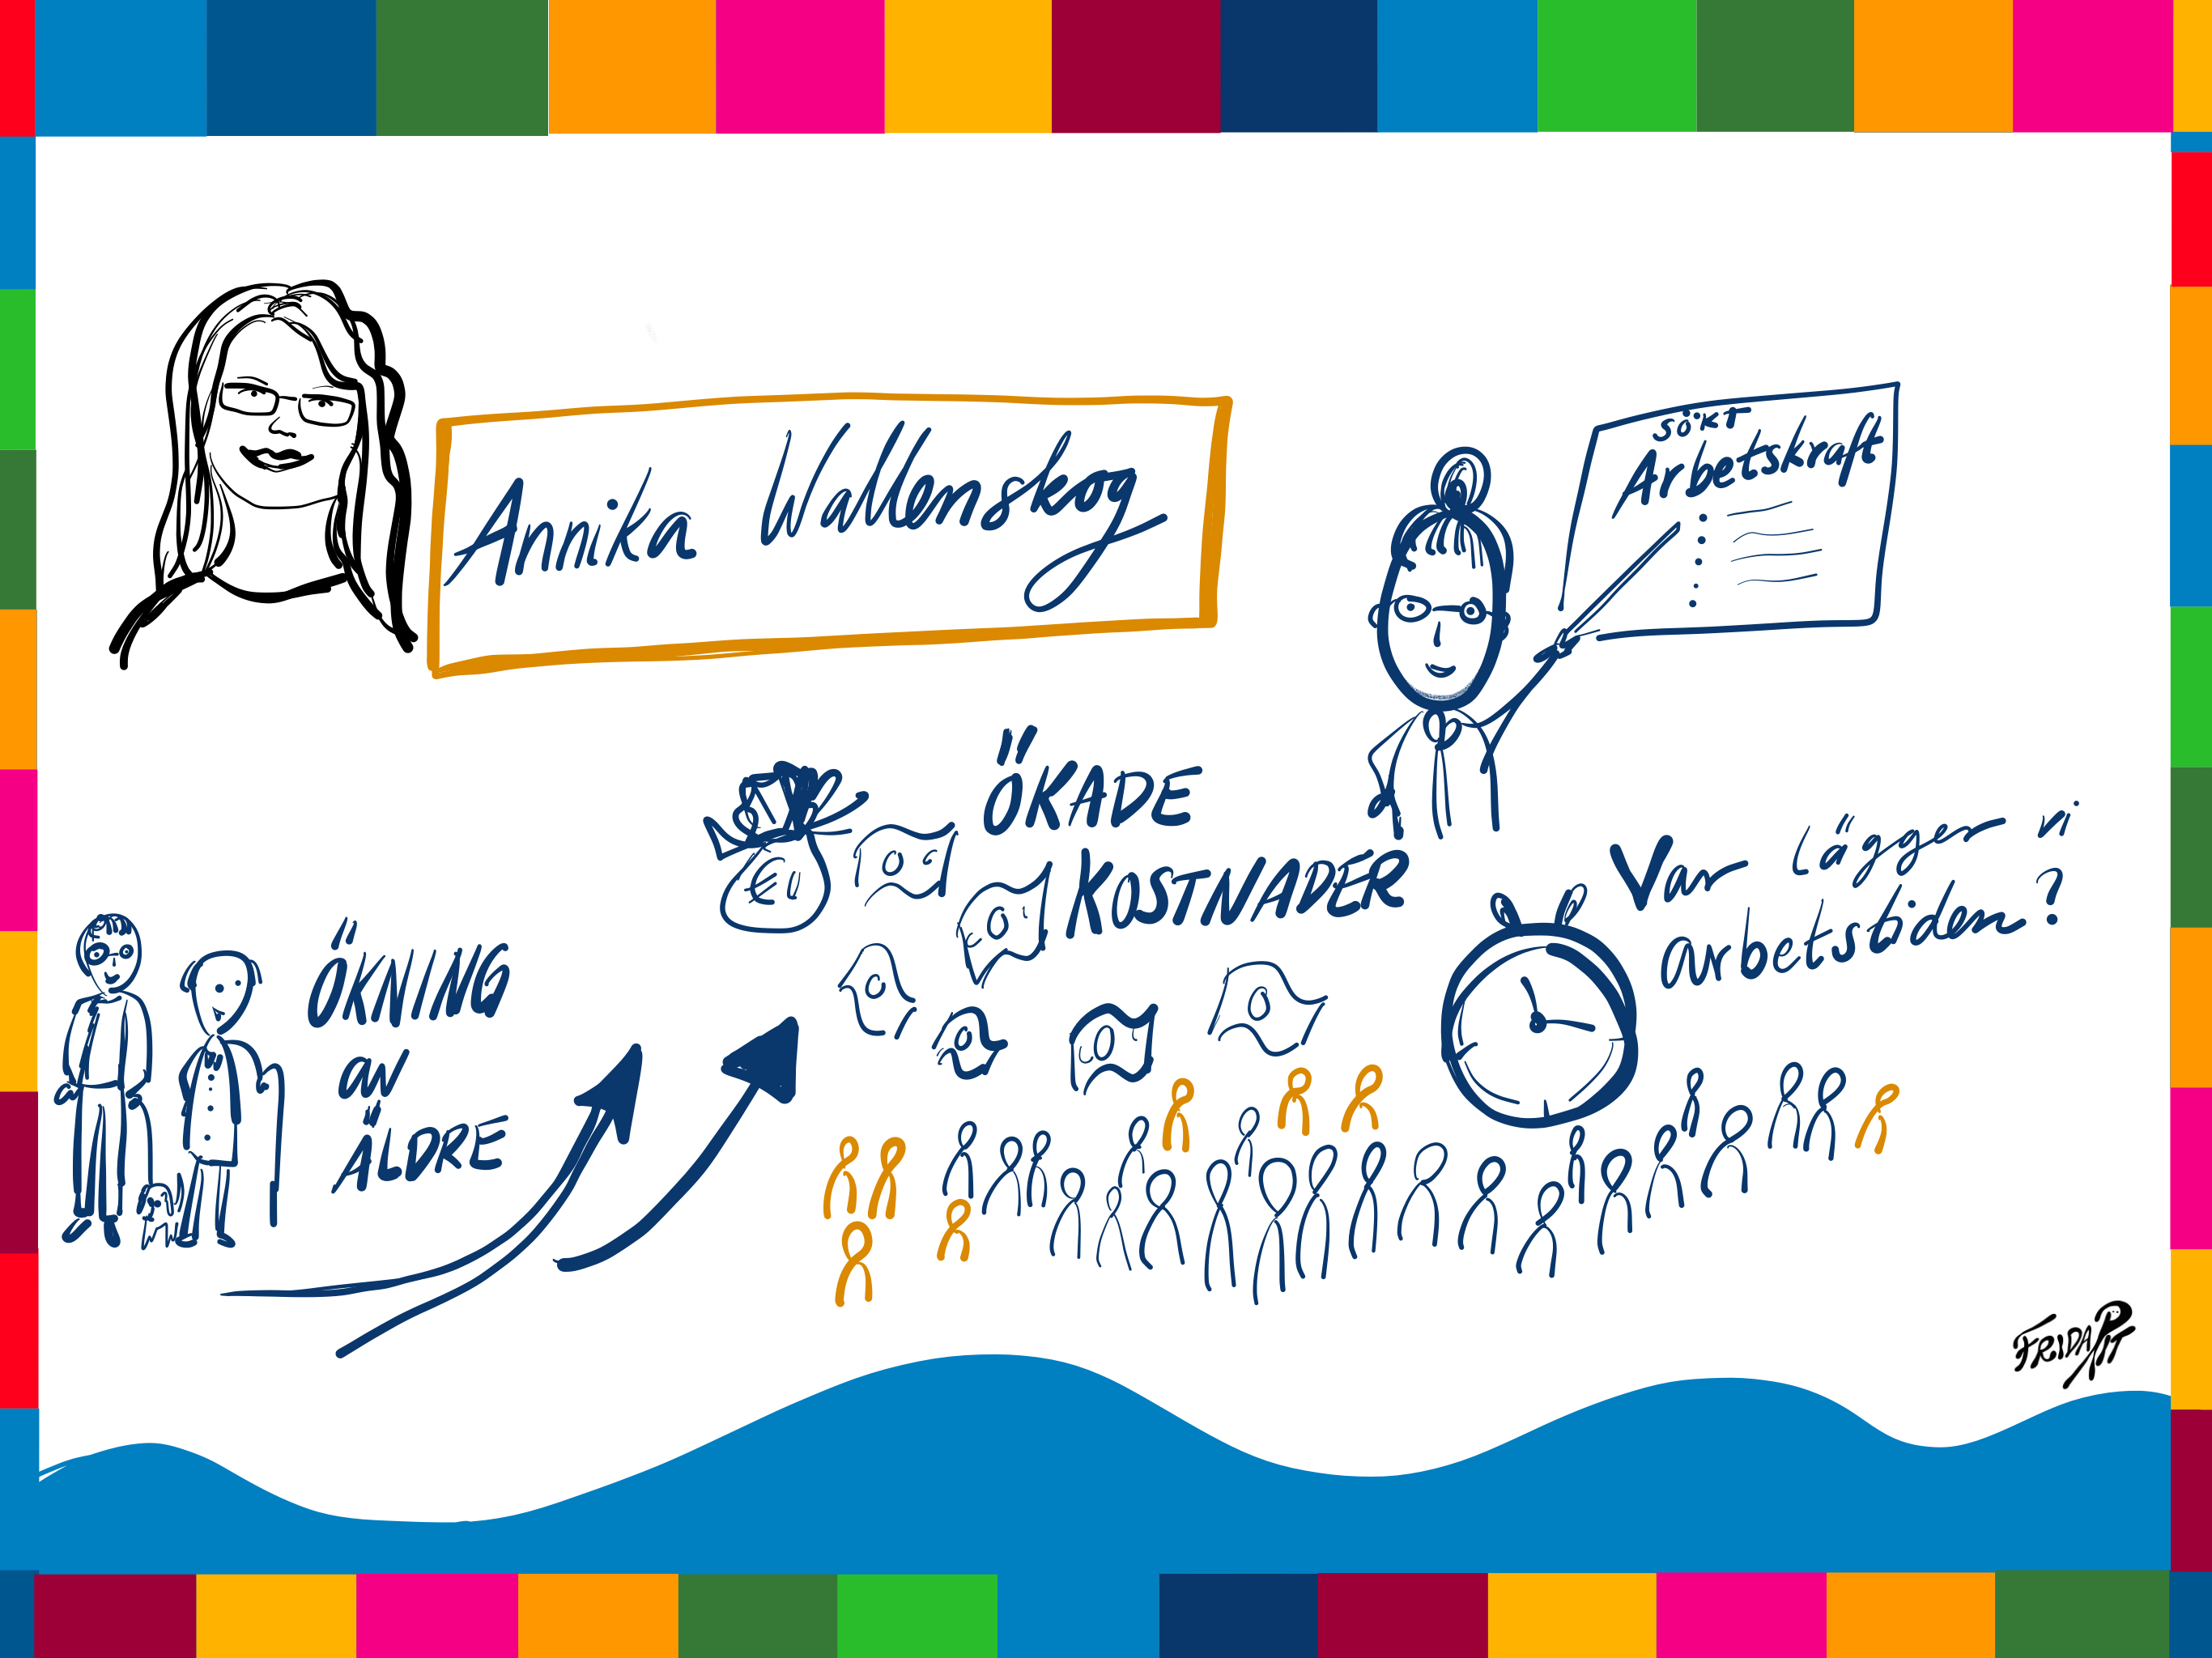 Annika Wallenskog
SÖKT
Arbetskraft
ÖKADE
KOSTNADER
Var lägger vi
arbetstiden?
ÖKNING
av
ÄLDRE
FRIDAP